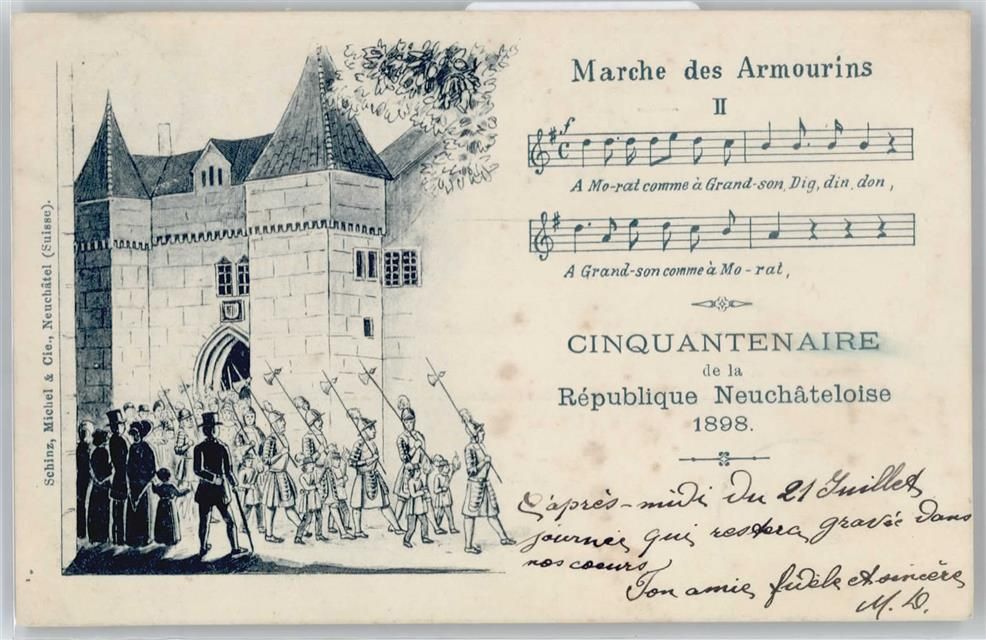 Schinz, Michel & Cie., Neuchâtel (Suisse).
Marche des Armourins
II
f
A Mo-rat comme à Grand-son, Dig, din, don,
A Grand-son comme à Mo-rat,
CINQUANTENAIRE
de la
République Neuchâteloise
1898.
L'après-midi du 21 Juillet
journée qui restera gravée dans
nos coeurs
Ton amie fidèle et sincère
M. D.